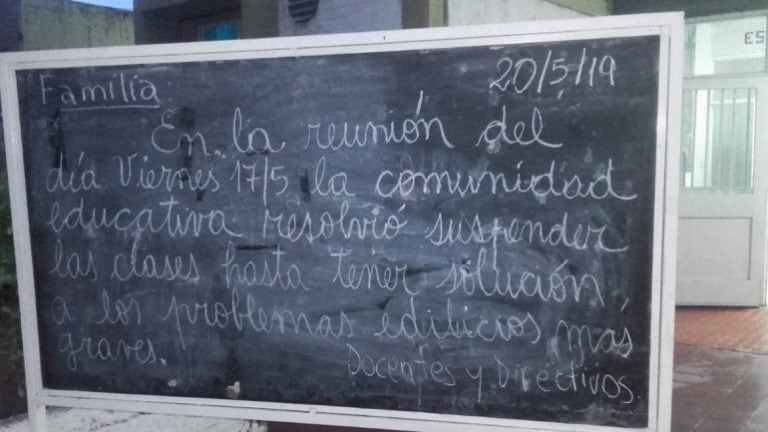 20/5/19
Familia:
En la reunión del
día Viernes 17/5 la comunidad
educativa resolvió suspender
las clases hasta tener solución,
a los problemas edilicios más
graves.
Docentes y Directivos.
ES